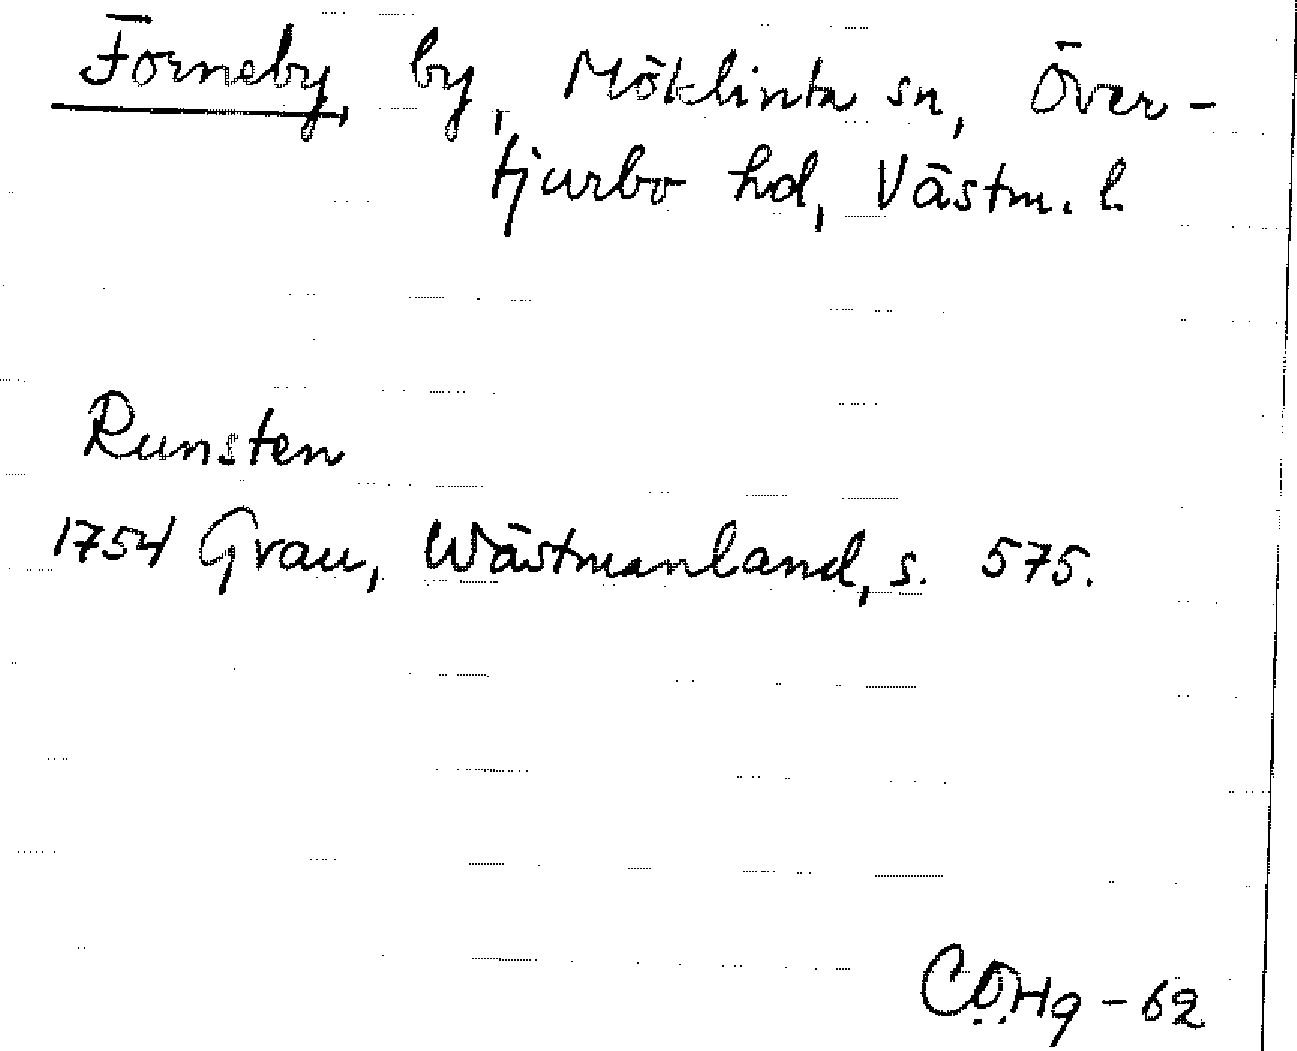 Forneby by, Möklinta sn, Över-
tjurbo hd, Västm. l.
Runsten
1754 Grau, Wästmanland, s. 575.
CÖHg - 62